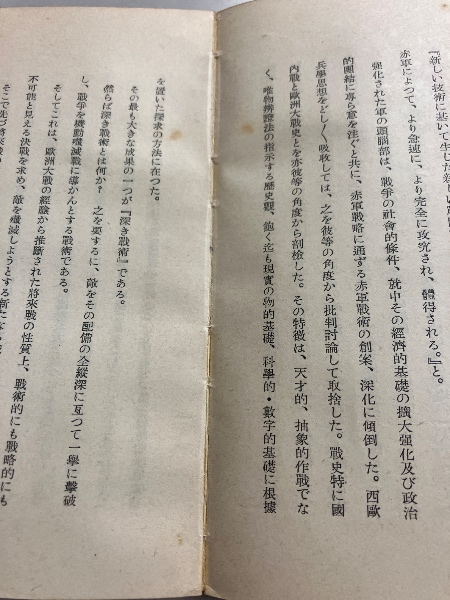 『新しい技術に基いて生じた新しい
赤軍によつて、より急速に、より完全に攻究され、體得される。』と。
强化された軍の頭腦部は、戰爭の社會的條件、就中その經濟的基礎の擴大强化及び政治
的團結に專ら意を注ぐと共に、赤軍戰略に通ずる赤軍戰術の創案、深化に傾倒した。西歐
兵學思想をどしどし吸收しては、之を彼等の角度から批判討論して取捨した。戰史特に國
內戰と歐洲大戰史とを亦彼等の角度から剖檢した。その特徵は、天才的、抽象的作戰でな
く、唯物辨證法の指示する歷史觀、飽く迄も現實の物的基礎、科學的・數字的基礎に根據
を置いた探求の方法に在つた。
その最も大きな成果の一つが『深き戰術』である。
然らば深き戰術とは何か？　之を要するに、敵をその配備の全縱深に亙つて一擧に擊破
し、戰爭を機動殲滅戰に導かんとする戰術である。
そしてこれは、歐洲大戰の經驗から推斷された將來戰の性質上、戰術的にも戰略的にも
不可能と見える決戰を求め、敵を殲滅しようとする新たな
そこで先づ將來戰の